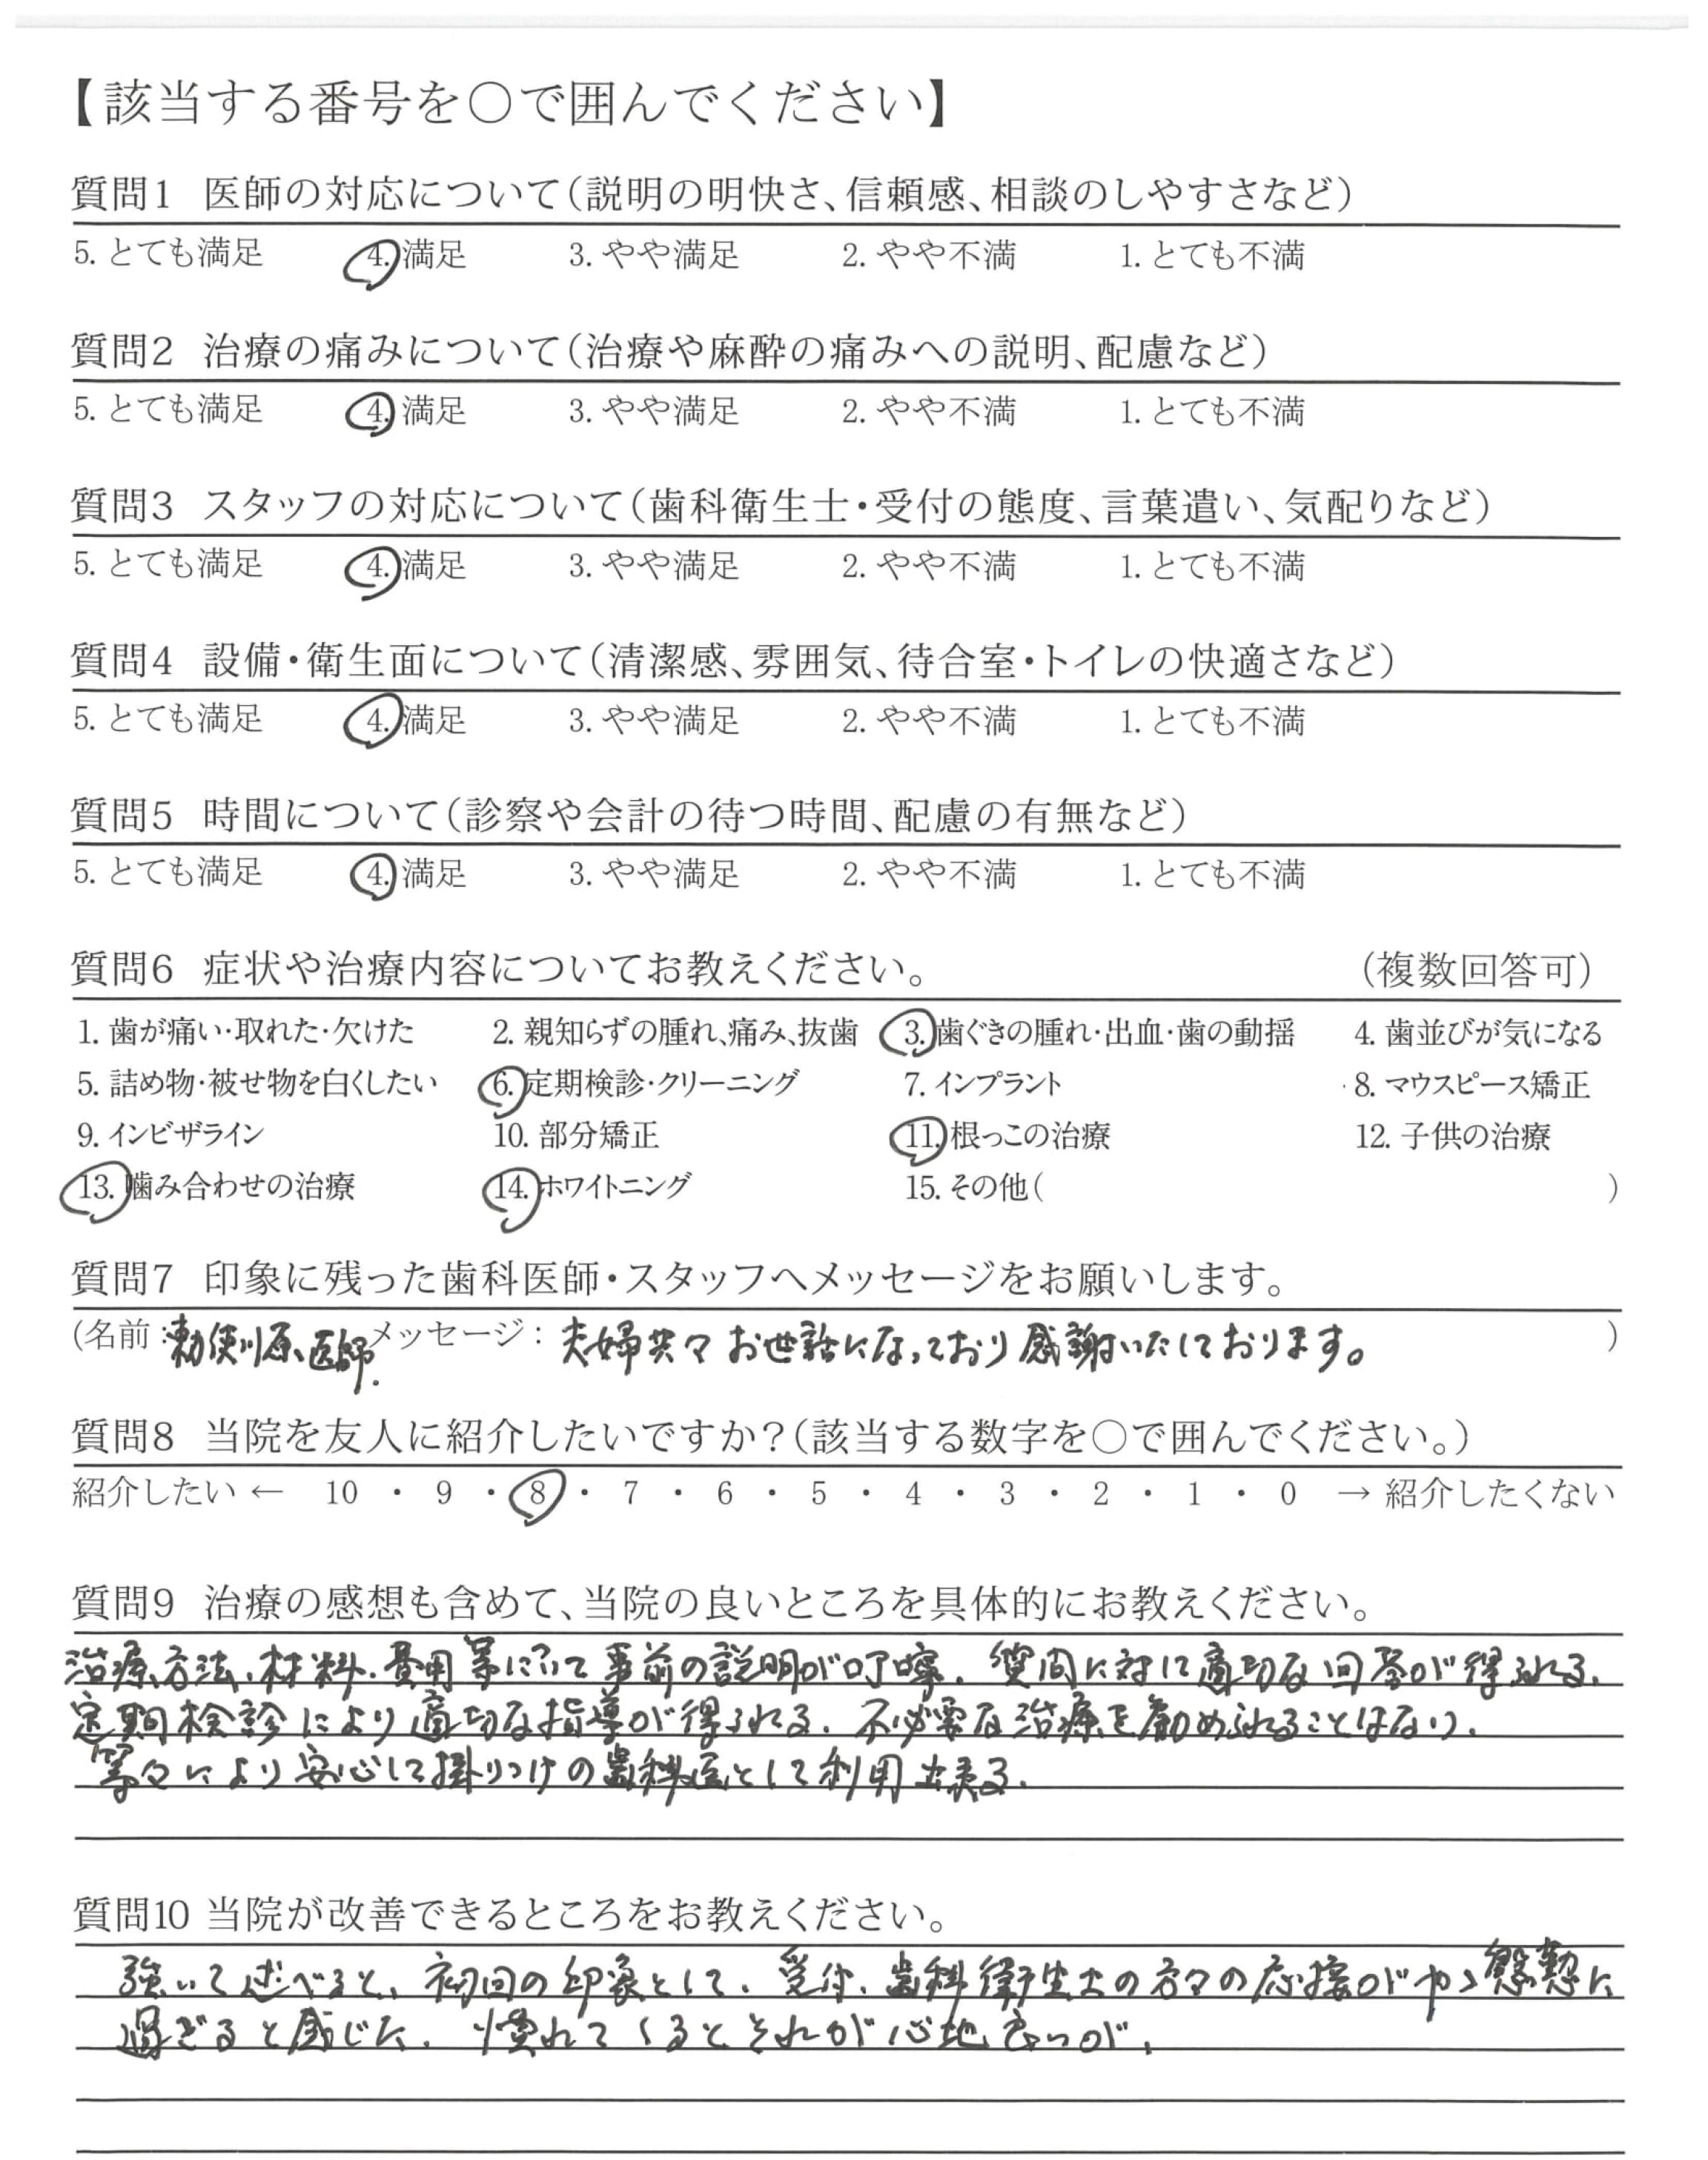 【該当する番号を○で囲んでください】
質問1 医師の対応について(説明の明快さ、信頼感、相談のしやすさなど)
5. とても満足 4. 満足 3. やや満足 2. やや不満 1. とても不満
質問2 治療の痛みについて(治療や麻酔の痛みへの説明、配慮など)
5. とても満足 4. 満足 3. やや満足 2. やや不満 1. とても不満
質問3 スタッフの対応について(歯科衛生士・受付の態度、言葉遣い、気配りなど)
5. とても満足 4. 満足 3. やや満足 2. やや不満 1. とても不満
質問4 設備・衛生面について(清潔感、雰囲気、待合室・トイレの快適さなど)
5. とても満足 4. 満足 3. やや満足 2. やや不満 1. とても不満
質問5 時間について(診察や会計の待つ時間、配慮の有無など)
5. とても満足 4. 満足 3. やや満足 2. やや不満 1. とても不満
質問6 症状や治療内容についてお教えください。 (複数回答可)
1. 歯が痛い・取れた・欠けた 2. 親知らずの腫れ、痛み、抜歯 3. 歯ぐきの腫れ・出血・歯の動揺 4. 歯並びが気になる
5. 詰め物・被せ物を白くしたい 6. 定期検診・クリーニング 7. インプラント 8. マウスピース矯正
9. インビザライン 10. 部分矯正 11. 根っこの治療 12. 子供の治療
13. 噛み合わせの治療 14. ホワイトニング 15. その他( )
質問7 印象に残った歯科医師・スタッフへメッセージをお願いします。
(名前:勅使川原医師. メッセージ: 夫婦共々お世話になっており感謝いたしております。 )
質問8 当院を友人に紹介したいですか?(該当する数字を○で囲んでください。)
紹介したい ← 10 ・ 9 ・ 8 ・ 7 ・ 6 ・ 5 ・ 4 ・ 3 ・ 2 ・ 1 ・ 0 → 紹介したくない
質問9 治療の感想も含めて、当院の良いところを具体的にお教えください。
治療方法、材料、費用等について事前の説明が叮嚀、質問に対して適切な回答が得られる、
定期検診により適切な指導が得られる、不必要な治療を勧められることはない、
等々により安心して掛りつけの歯科医として利用出来る、
質問10 当院が改善できるところをお教えください。
強いて述べると、初回の印象として、受付、歯科衛生士の方々の応接がやゝ慇懃に
過ぎると感じた、慣れてくるとそれが心地良いが、